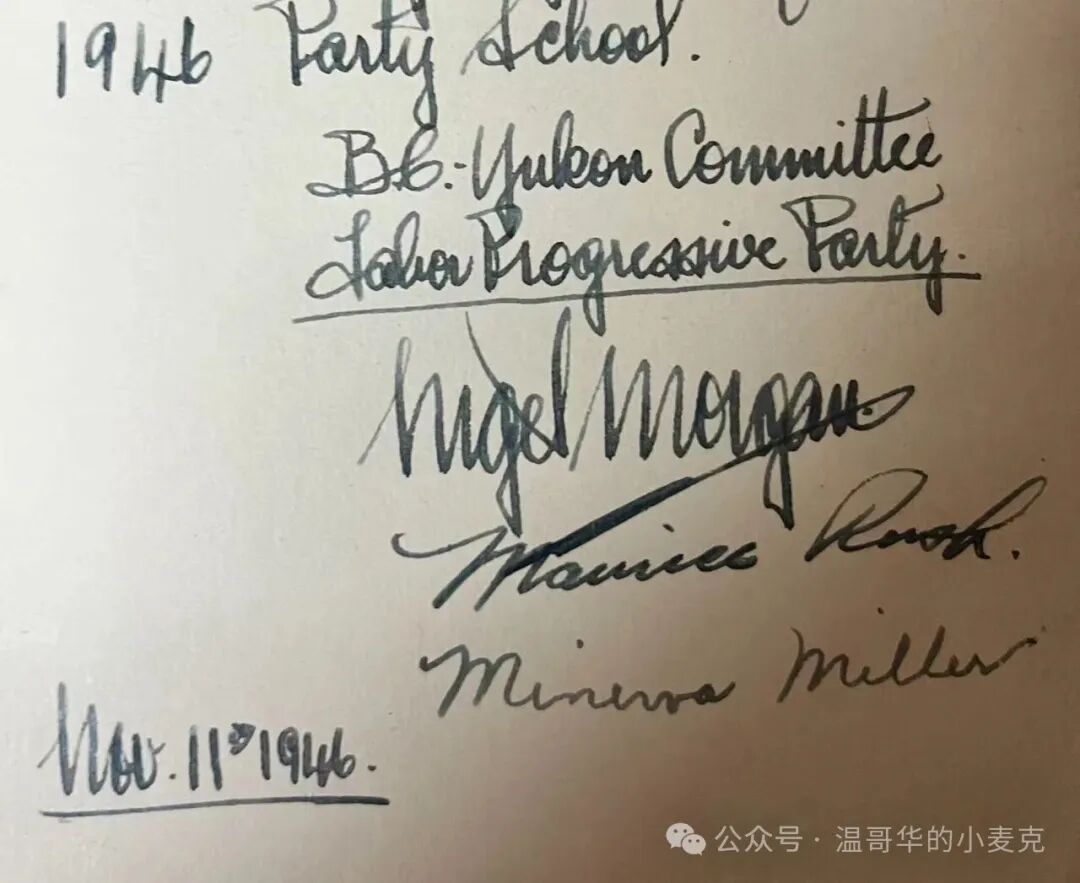 1946 Party School.
B.C.-Yukon Committee
Labor Progressive Party.
Nigel Morgan.
Maurice Rush.
Minerva Miller
Nov. 11th 1946.
公众号 · 温哥华的小麦克